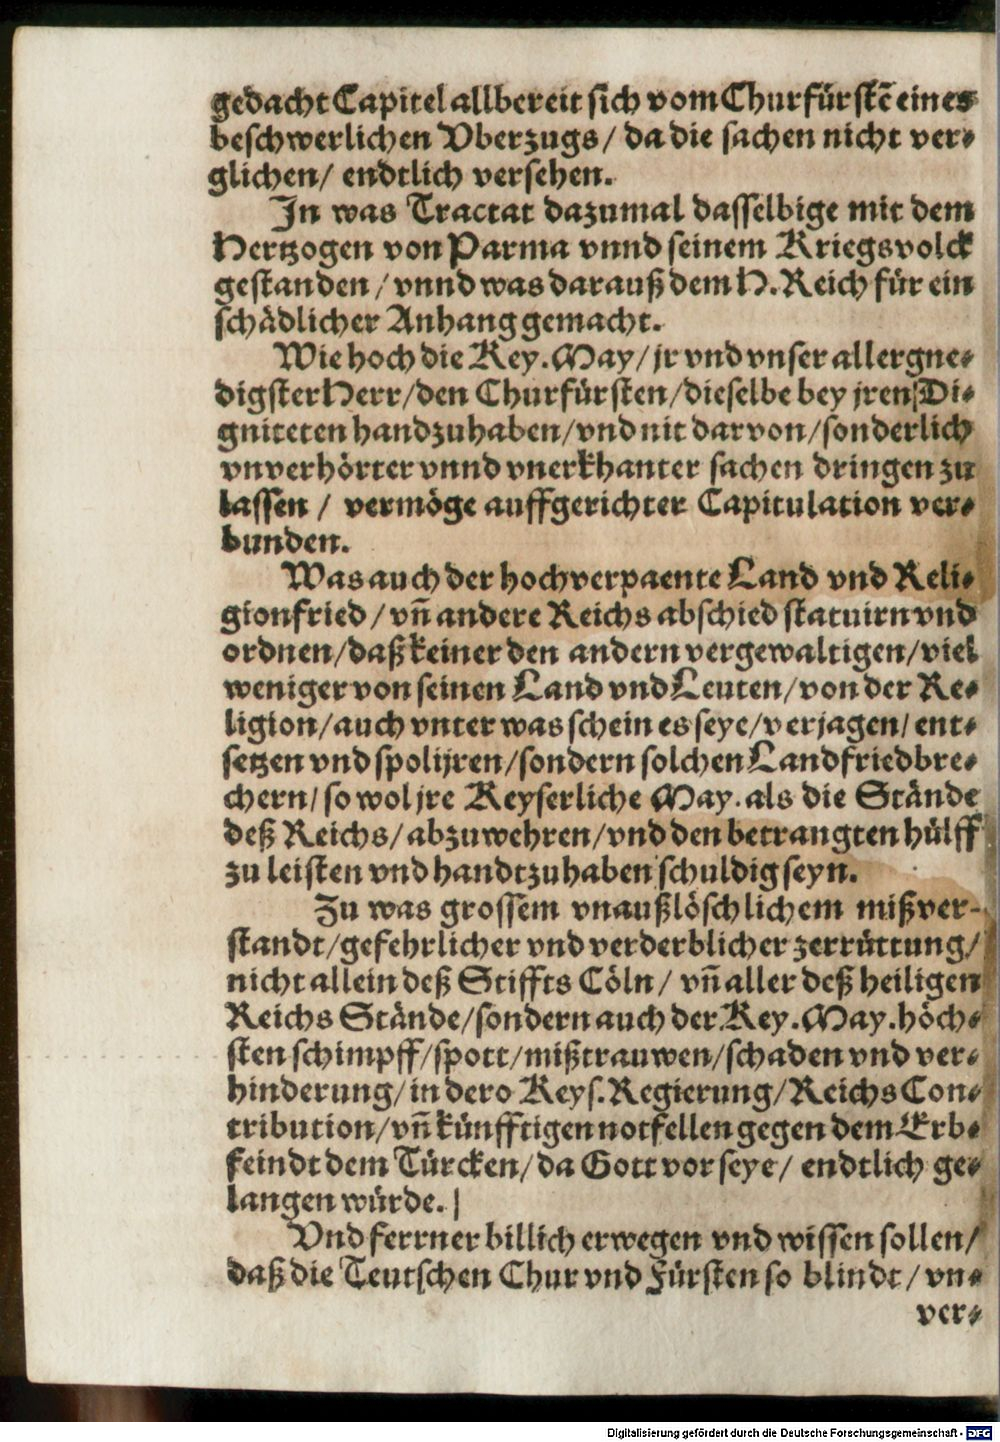 gedacht Capitel allbereit sich vom Churfürstē eines
beschwerlichen Vberzugs/ da die sachen nicht ver-
glichen/ endtlich versehen.
In was Tractat dazumal dasselbige mit dem
Hertzogen von Parma vnnd seinem Kriegsvolck
gestanden/ vnnd was darauß dem H. Reich für ein
schädlicher Anhang gemacht.
Wie hoch die Key. May/ jr vnd vnser allergne-
digster Herr/ den Churfürsten/ dieselbe bey jren Di-
gniteten handzuhaben/ vnd nit darvon/ sonderlich
vnverhörter vnnd vnerkhanter sachen dringen zu
lassen/ vermöge auffgerichter Capitulation ver-
bunden.
Was auch der hochverpaente Land vnd Reli-
gionfried/ vn̄ andere Reichs abschied statuirn vnd
ordnen/ daß keiner den andern vergewaltigen/ viel
weniger von seinen Land vnd Leuten/ von der Re-
ligion/ auch vnter was schein es seye/ verjagen/ ent-
setzen vnd spolijren/ sondern solchen Landfriedbre-
chern/ so wol jre Keyserliche May. als die Stände
deß Reichs/ abzuwehren/ vnd den betrangten hülff
zu leisten vnd handtzuhaben schuldig seyn.
Zu was grossem vnaußlöschlichem mißver-
standt/ gefehrlicher vnd verderblicher zerrüttung/
nicht allein deß Stiffts Cöln/ vn̄ aller deß heiligen
Reichs Stände/ sondern auch der Key. May. höch-
sten schimpff/ spott/ mißtrauwen/ schaden vnd ver-
hinderung/ in dero Keys. Regierung/ Reichs Con-
tribution/ vn̄ künfftigen notfellen gegen dem Erb-
feindt dem Türcken/ da Gott vor seye/ endtlich ge-
langen würde.
Vnd ferrner billich erwegen vnd wissen sollen/
daß die Teutschen Chur vnd Fürsten so blindt/ vn-
ver-
Digitalisierung gefördert durch die Deutsche Forschungsgemeinschaft - DFG